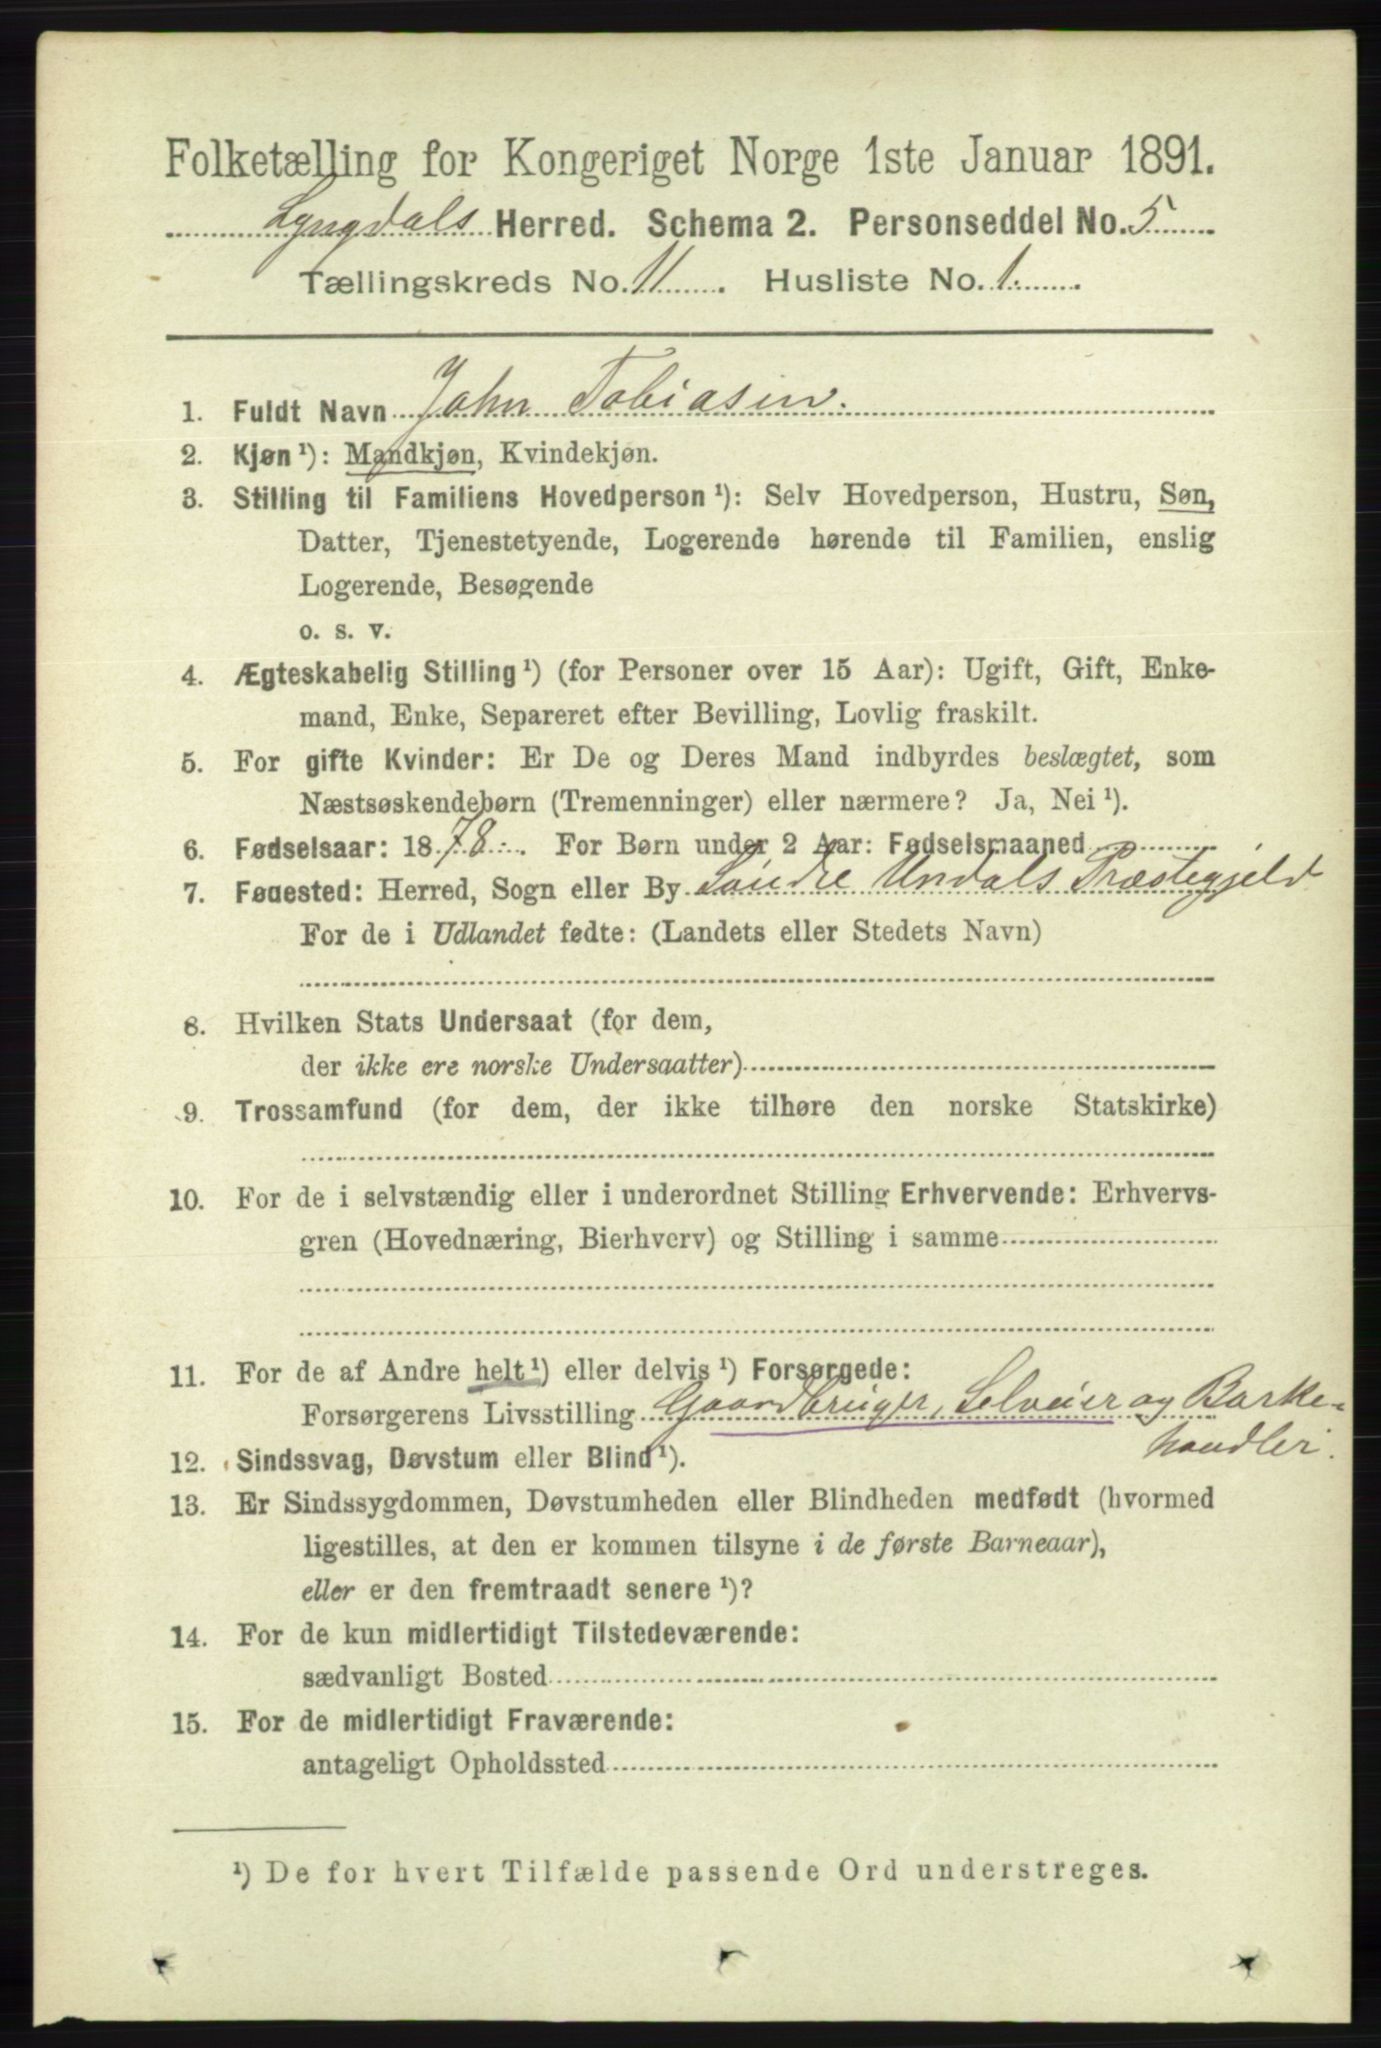 Folketælling for Kongeriget Norge 1ste Januar 1891.
Lyngdals Herred. Schema 2. Personseddel No. 5
Tællingskreds No. 11. Husliste No. 1.
1. Fuldt Navn John Tobiasen.
2. Kjøn ¹): Mandkjøn, Kvindekjøn.
3. Stilling til Familiens Hovedperson ¹): Selv Hovedperson, Hustru, Søn,
Datter, Tjenestetyende, Logerende hørende til Familien, enslig
Logerende, Besøgende
o. s. v.
4. Ægteskabelig Stilling ¹) (for Personer over 15 Aar): Ugift, Gift, Enke-
mand, Enke, Separeret efter Bevilling, Lovlig fraskilt.
5. For gifte Kvinder: Er De og Deres Mand indbyrdes beslægtet, som
Næstsøskendebørn (Tremenninger) eller nærmere? Ja, Nei ¹).
6. Fødselsaar: 1878. For Børn under 2 Aar: Fødselsmaaned
7. Fødested: Herred, Sogn eller By Söndre Undals Præstegjeld
For de i Udlandet fødte: (Landets eller Stedets Navn)
8. Hvilken Stats Undersaat (for dem,
der ikke ere norske Undersaatter)
9. Trossamfund (for dem, der ikke tilhøre den norske Statskirke)
10. For de i selvstændig eller i underordnet Stilling Erhvervende: Erhvervs-
gren (Hovednæring, Bierhverv) og Stilling i samme
11. For de af Andre helt ¹) eller delvis ¹) Forsørgede:
Forsørgerens Livsstilling Gaardbruger, Selveier og Barke-
handler.
12. Sindssvag, Døvstum eller Blind ¹).
13. Er Sindssygdommen, Døvstumheden eller Blindheden medfødt (hvormed
ligestilles, at den er kommen tilsyne i de første Barneaar),
eller er den fremtraadt senere ¹)?
14. For de kun midlertidigt Tilstedeværende:
sædvanligt Bosted
15. For de midlertidigt Fraværende:
antageligt Opholdssted
¹) De for hvert Tilfælde passende Ord understreges.